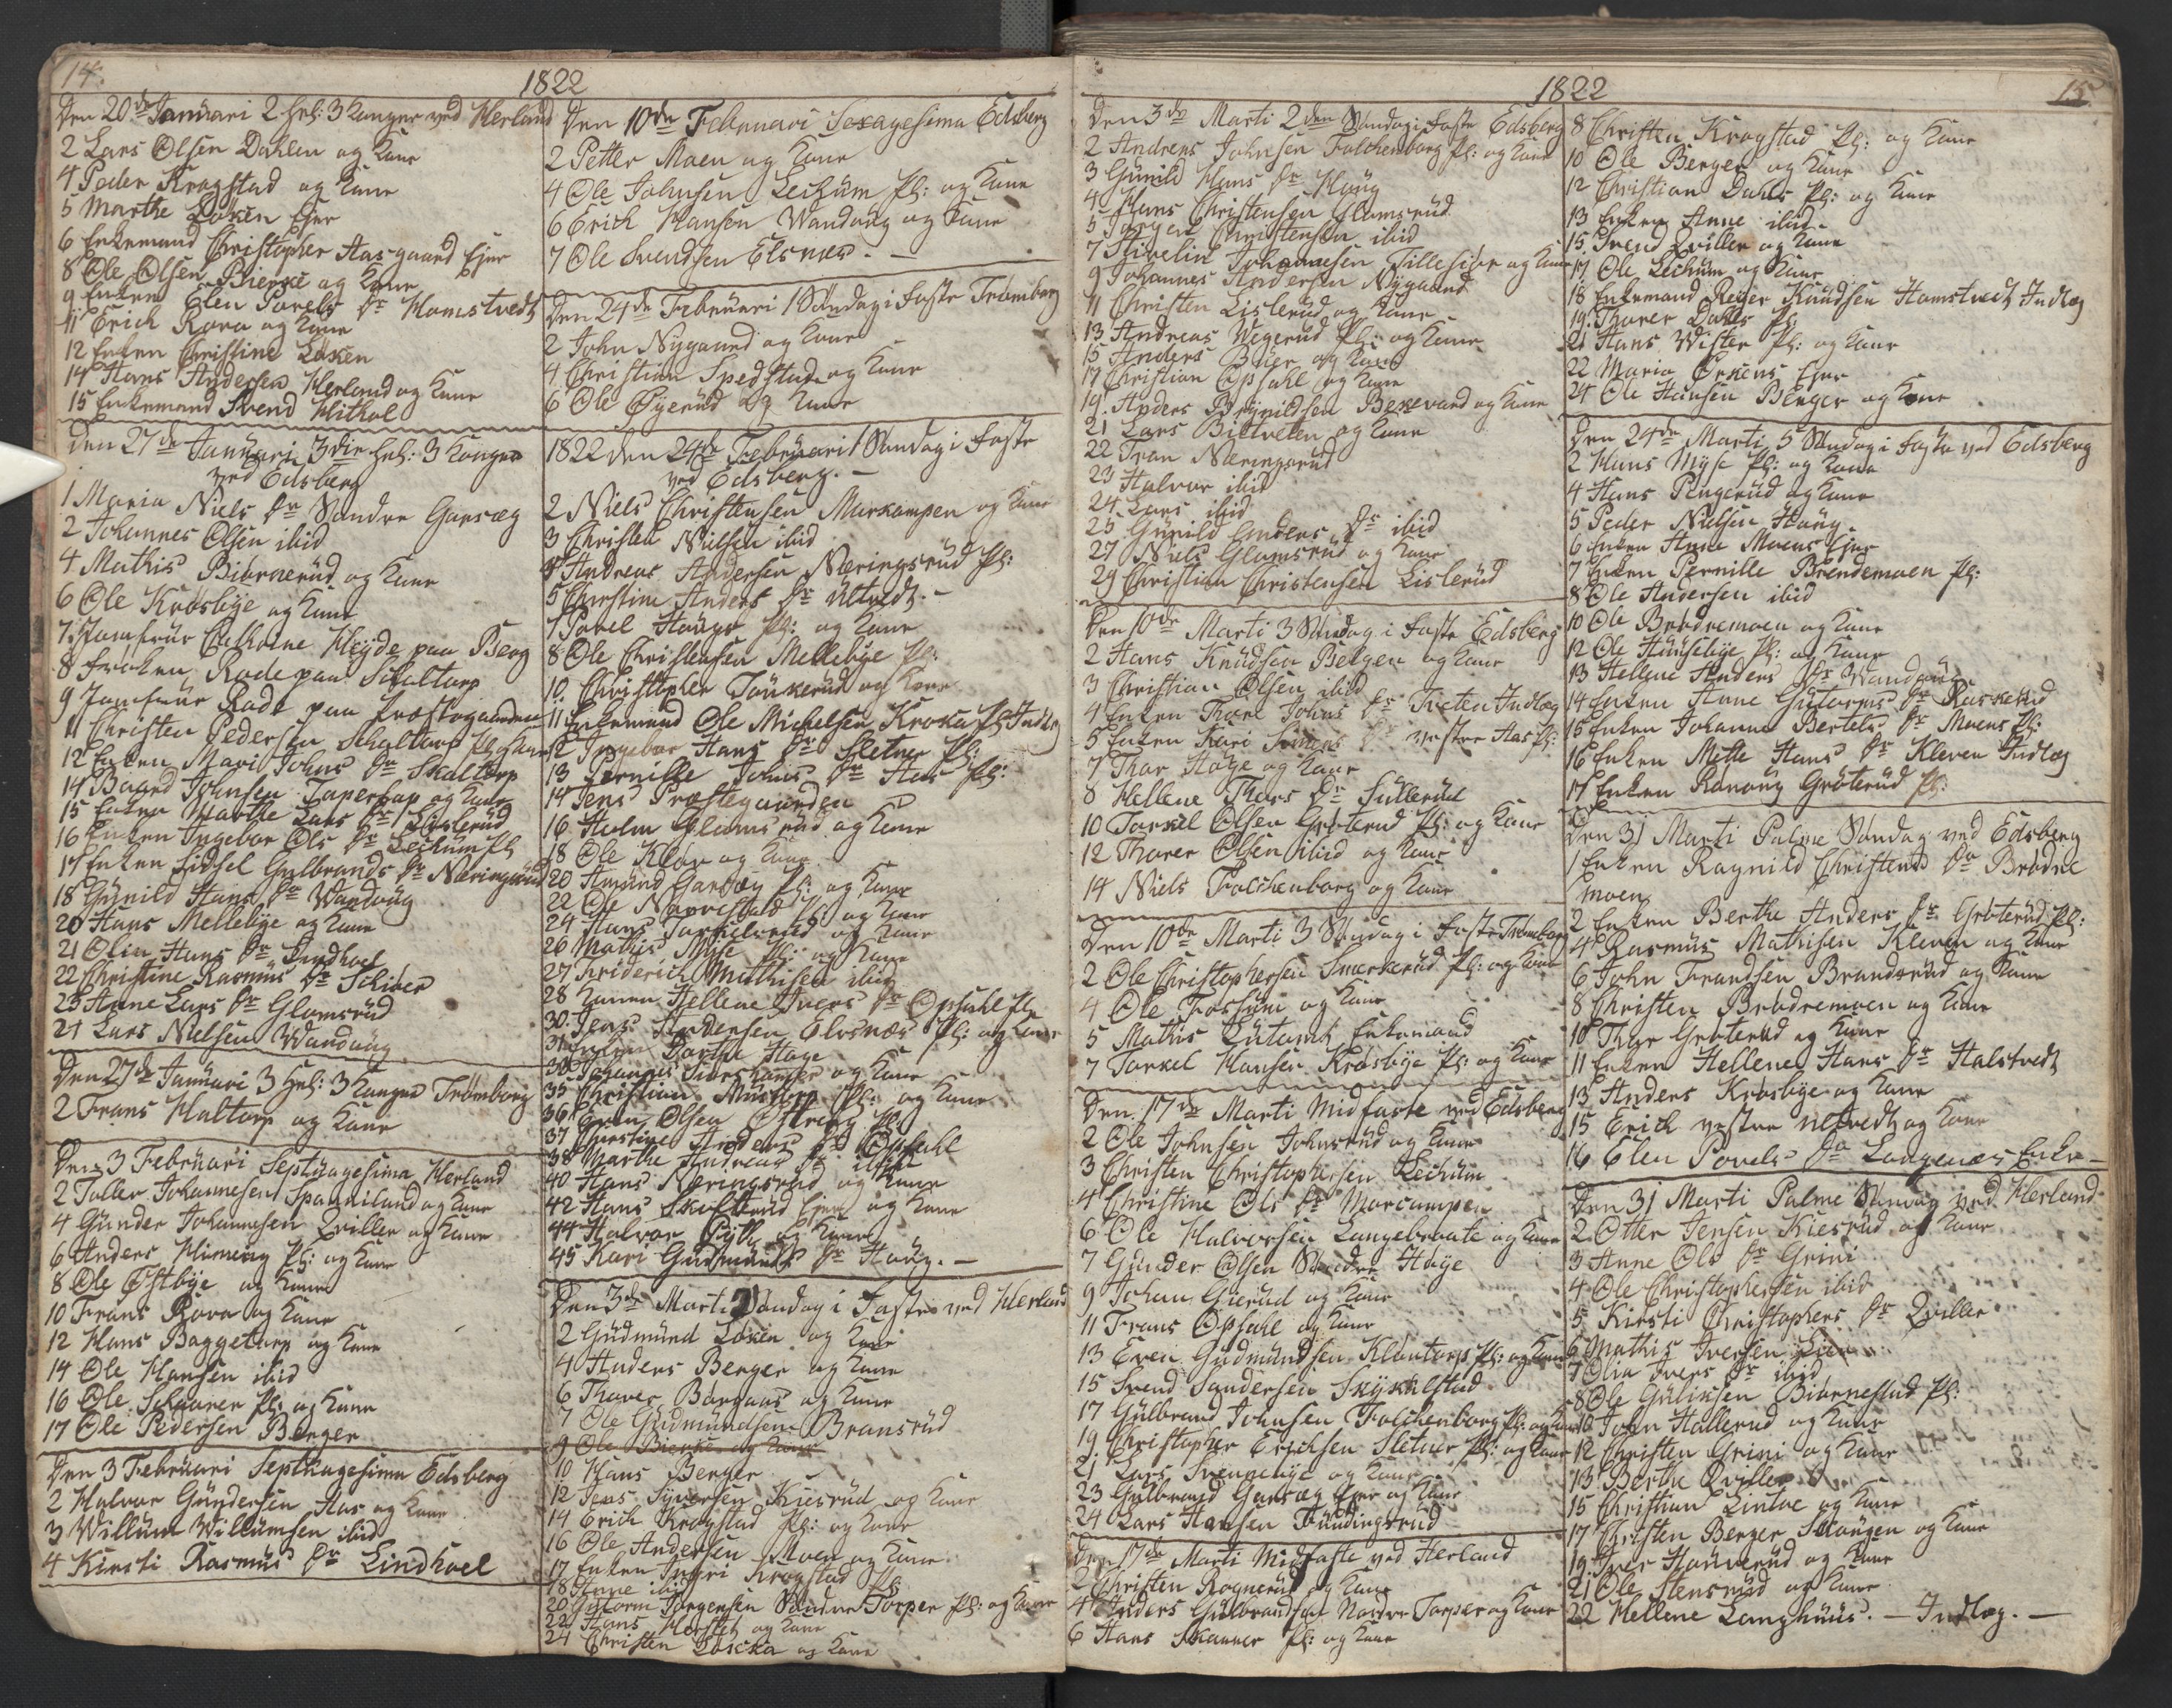 14.
1822
Den 20de Januari 2 Hel: 3 Konger ved Herland
2 Lars Olsen Dahlen og Kone
4 Peder Krogstad og Kone
5 Marthe Löken Ejer
6 Enkemand Christopher Aas-gaard Ejer
8 Ole Olsen Bierke og Kone
9 Enken Elen Povels Dr Homstvedt
11 Erich Rova og Kone
12 Enken Christine Löken
14 Hans Andersen Herland og Kone
15 Enkemand Svend Hithol
Den 27de Januari 3die Hel: 3 Konger
ved Edsberg
1 Maria Niels Dr Söndre Garseg
2 Johannes Olsen ibid
4 Mathis Biörnerüd og Kone
6 Ole Krosbye og Kone
7 Jomfrue Cathrine Heyde paa Berg
8 Fröken Rode paa Skaltorp
9 Jomfrue Rode paa Præstegaarden
11 Christen Pedersen Skaltorp Pl og Kone
12 Enken Mari Johns Dr Skaltorp
14 Baard Johnsen og Kone
15 Enken Marthe Lars Dr Lislerüd
16 Enken Ingebor Ols Dr Lechum Pl
17 Enken Sidsel Gulbrands Dr Næringsrüd
18 Günild Hans Dr Wandüng
20 Hans Mellebye og Kone
21 Olia Hans Dr Lindhoel
22 Christine Rasmus Dr Schiver
23 Anne Lars Dr Glomsrüd
24 Lars Nielsen Wandüng
Den 27de Januari 3 Hel: 3 Konger Trömborg
2 Frans Haltorp og Kone
Den 3 Februari Septuagesima Herland
2 Toller Johannesen Spaniland og Kone
4 Günder Johannesen Qviller og Kone
6 Anders Hireng Pl: og Kone
8 Ole Östbye og Kone
10 Frans Rova og Kone
12 Hans Baggetorp og Kone
14 Ole Hansen ibid
16 Ole Skaarer Pl: og Kone
17 Ole Pedersen Berger
Den 3 Februari Septuagesima Edsberg
2 Halvor Gündersen Aas og Kone
3 Willüm Willümsen ibid
4 Kirsti Rasmus Dr Lindhoel
Den 10de Februari Sexagesima Edsberg
2 Petter Moen og Kone
4 Ole Johnsen Lechüm Pl: og Kone
6 Erich Hansen Wandüng og Kone
7 Ole Svendsen Elsnes. —
Den 24de Februari 1 Söndag i Faste Trömborg
2 John Nygaard og Kone
4 Christian Spedstad og Kone
6 Ole Öyerüd og Kone
1822 den 24de Februari 1 Söndag i Faste
ved Edsberg. —
2 Niels Christensen Markampen og Kone
3 Christen Nielsen ibid
4 Andreas Andersen Næringsrüd Pl:
5 Christine Anders Dr Ültvedt. —
7 Povel Houge Pl: og Kone
8 Ole Christensen Mellebye Pl:
10 Christopher Tönkerüd og Kone
11 Enkemand Ole Michelsen Kroka Pl: Indlæg
12 Ingebor Hans Dr Sletner Pl:
13 Pernille Johns Dr Aas Pl:
14 Jens Præstegaarden
16 Holm Glomsrüd og Kone
18 Ole Klöv og Kone
20 Amünd Garseg Pl: og Kone
22 Ole Narvestad Pl: og Kone
24 Hans og Kone
26 Mathis Myse Pl: og Kone
27 Friderich Mathisen ibid
28 Konen Hellene Ivers Dr Opsahl Pl
30 Jens Andersen Elvsnæs Pl: og Kone
31 Dorthe Hage
33 Johannes og Kone
35 Christian Müstorp Pl: og Kone
36 Even Olsen Östreng Pl:
37 Christine Anders Dr Opsahl
38 Marthe Andreas Dr ibid
40 Hans Næringsrüd og Kone
42 Hans Skofterüd Ejer og Kone
44 Halvor og Kone
45 Kari Gudmünds Dr Haüg. —
Den 3de Marti Söndag i Faste ved Herland
2 Güdmünd Löken og Kone
4 Anders Berger og Kone
6 Thover Bergaas og Kone
7 Ole Güdmündsen Bransrüd
9 Ole Bierke og Kone
10 Hans Berger
12 Jens Syversen Kiesrüd og Kone
14 Erich Krogstad Pl: og Kone
16 Ole Andersen Moen og Kone
17 Enken Ingri Krogstad Pl
18 Anne ibid
20 Gutorm Jorgensen Söndre Torper Pl: og Kone
22 Hans og Kone
24 Christen og Kone
1822
15.
Den 3de Marti 2den Söndag i Faste Edsberg
2 Andreas Johnsen Folchenborg Pl: og Kone
3 Günild Hans Dr Haüg
4 Hans Christensen Glomsrüd
5 Jörgen Christensen ibid
7 Johannesen Tillesiör og Kone
9 Johannes Andersen Nygaard
11 Christen Lislerüd og Kone
13 Andreas Wegerüd Pl: og Kone
15 Anders Büer og Kone
17 Christian Opsahl og Kone
19 Anders Brynildsen Bexevard og Kone
21 Lars Bietvelen og Kone
22 Iver Næringsrud
23 Halvor ibid
24 Lars ibid
25 Günild Anders Dr ibid
27 Niels Glomsrüd og Kone
29 Christian Christensen Lislerüd
Den 10de Marti 3 Söndag i Faste Edsberg
2 Hans Knüdsen Belgen og Kone
3 Christian Olsen ibid
4 Enken Thore Johns Dr Tveten Indlæg
5 Enken Kari Simens Dr vestre Aas Pl:
7 Thor Hage og Kone
8 Hellene Thors Dr Süllerüd
10 Torkel Olsen Gröterud Pl: og Kone
12 Thorer Olsen ibid og Kone
14 Niels Folchenborg og Kone
Den 10de Marti 3 Söndag i Faste Trömborg
2 Ole Christophersen Smerkerüd Pl: og Kone
4 Ole Fossum og Kone
5 Mathis Enkemand
7 Torkel Hansen Krosbye Pl: og Kone
Den 17de Marti Midfaste ved Edsberg
2 Ole Johnsen Johnsrüd og Kone
3 Christen Christophersen Lechüm
4 Christine Ols Dr Marcampen
6 Ole Halvorsen Langebraate og Kone
7 Günder Olsen Söndre Hage
9 Johan Guerüd og Kone
11 Frans Opsahl og Kone
13 Even Güdmündsen Klontorp Pl: og Kone
15 Svend Sandersen
17 Gülbrand Johnsen Folchenborg Pl: og Kone
19 Christopher Erichsen Sletner Pl: og Kone
21 Lars Svennebye og Kone
23 Gülbrand Garseg Ejer og Kone
24 Lars Hansen Fündingsrud
Den 17de Marti Midfaste ved Herland
2 Christen Rognerüd og Kone
4 Anders Gülbrandsen Nordre Torper og Kone
6 Hans Skanner Pl: og Kone
8 Christen Krogstad Pl: og Kone
10 Ole Berger og Kone
12 Christian Dahls Pl: og Kone
13 Enken Anne ibid
15 Svend Qviller og Kone
17 Ole Lechüm og Kone
18 Enkemand Reyer Knüdsen Homstvedt Indlæg
19 Thorer Dahls Pl
21 Hans Wister Pl: og Kone
22 Maria Ejer
24 Ole Hansen Berger og Kone
Den 24de Marti 5 Söndag i Faste ved Edsberg
2 Hans Myse Pl: og Kone
4 Hans Pengerüd og Kone
5 Peder Nielsen Haüg.
6 Enken Anne Moens Ejer
7 Enken Pernille Brendemoen Pl:
8 Ole Andersen ibid
10 Ole Brödremoen og Kone
12 Ole Pl: og Kone
13 Hellene Anders Dr Wandüng
14 Enken Anne Gutorms Dr
15 Enken Johanne Bertels Dr Moens Pl:
16 Enken Mette Hans Dr Kleven Indlæg
17 Enken Ranoug Gröterüd Pl:
Den 31 Marti Palme Söndag ved Edsberg
1 Enken Ragnild Christens Dr Brödre
moen
2 Enken Berthe Anders Dr Gröterüd Pl:
4 Rasmüs Mathisen Kleven og Kone
6 John Frandsen Brandsrüd og Kone
8 Christen Brödremoen og Kone
10 Thor Gröterüd og Kone
11 Enken Hellene Hans Dr Halstvedt
13 Anders Krosbye og Kone
15 Erich vestre Ultvedt og Kone
16 Elen Povels Dr Langenæs Enke —
Den 31 Marti Palme Söndag ved Herland
2 Otter Jensen Kiesrüd og Kone
3 Anne Ols Dr Grini
4 Ole Christophersen ibid
5 Kirsti Christophers Dr Qviller
6 Mathis Iversen Lien
7 Olia Ivers Dr ibid
8 Ole Güliksen Biörnestad Pl:
10 John Hallerud og Kone
12 Christen Grini og Kone
13 Berthe Qviller
15 Christian Lintoe og Kone
17 Christen Berger Skougen og Kone
19 Iver Haüverüd og Kone
21 Ole Stensrüd og Kone
22 Hellene Langhüüs. — Indlæg. —